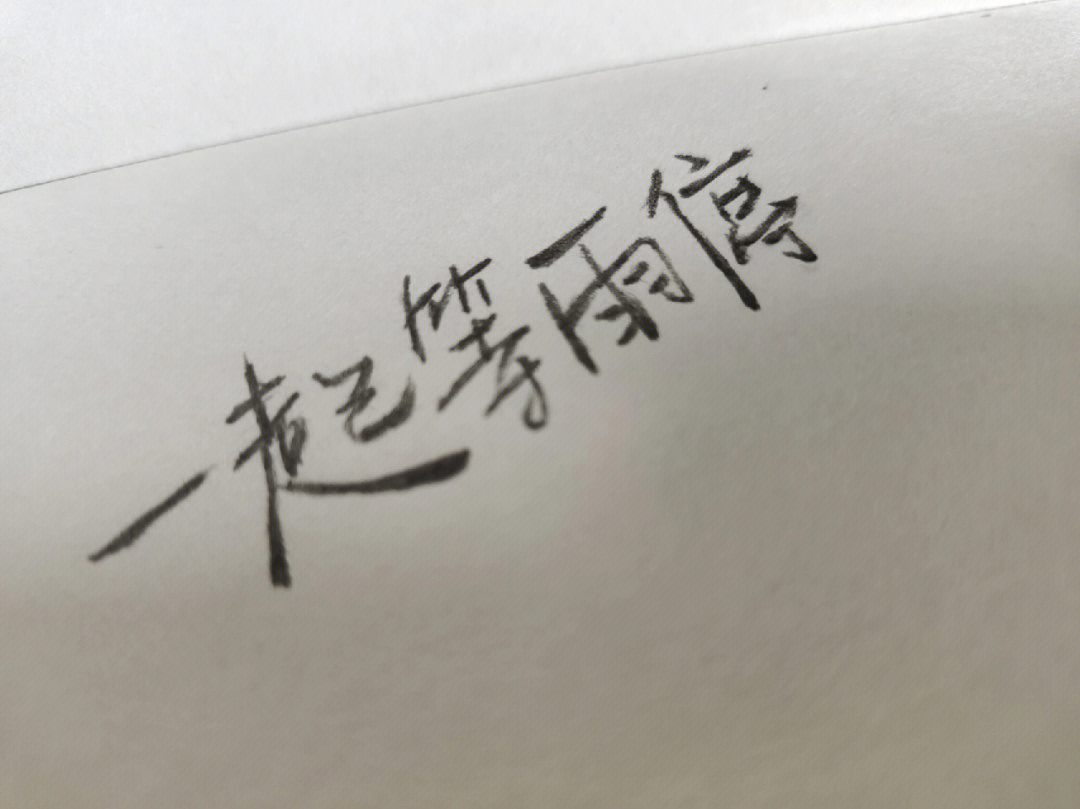 一起等雨停